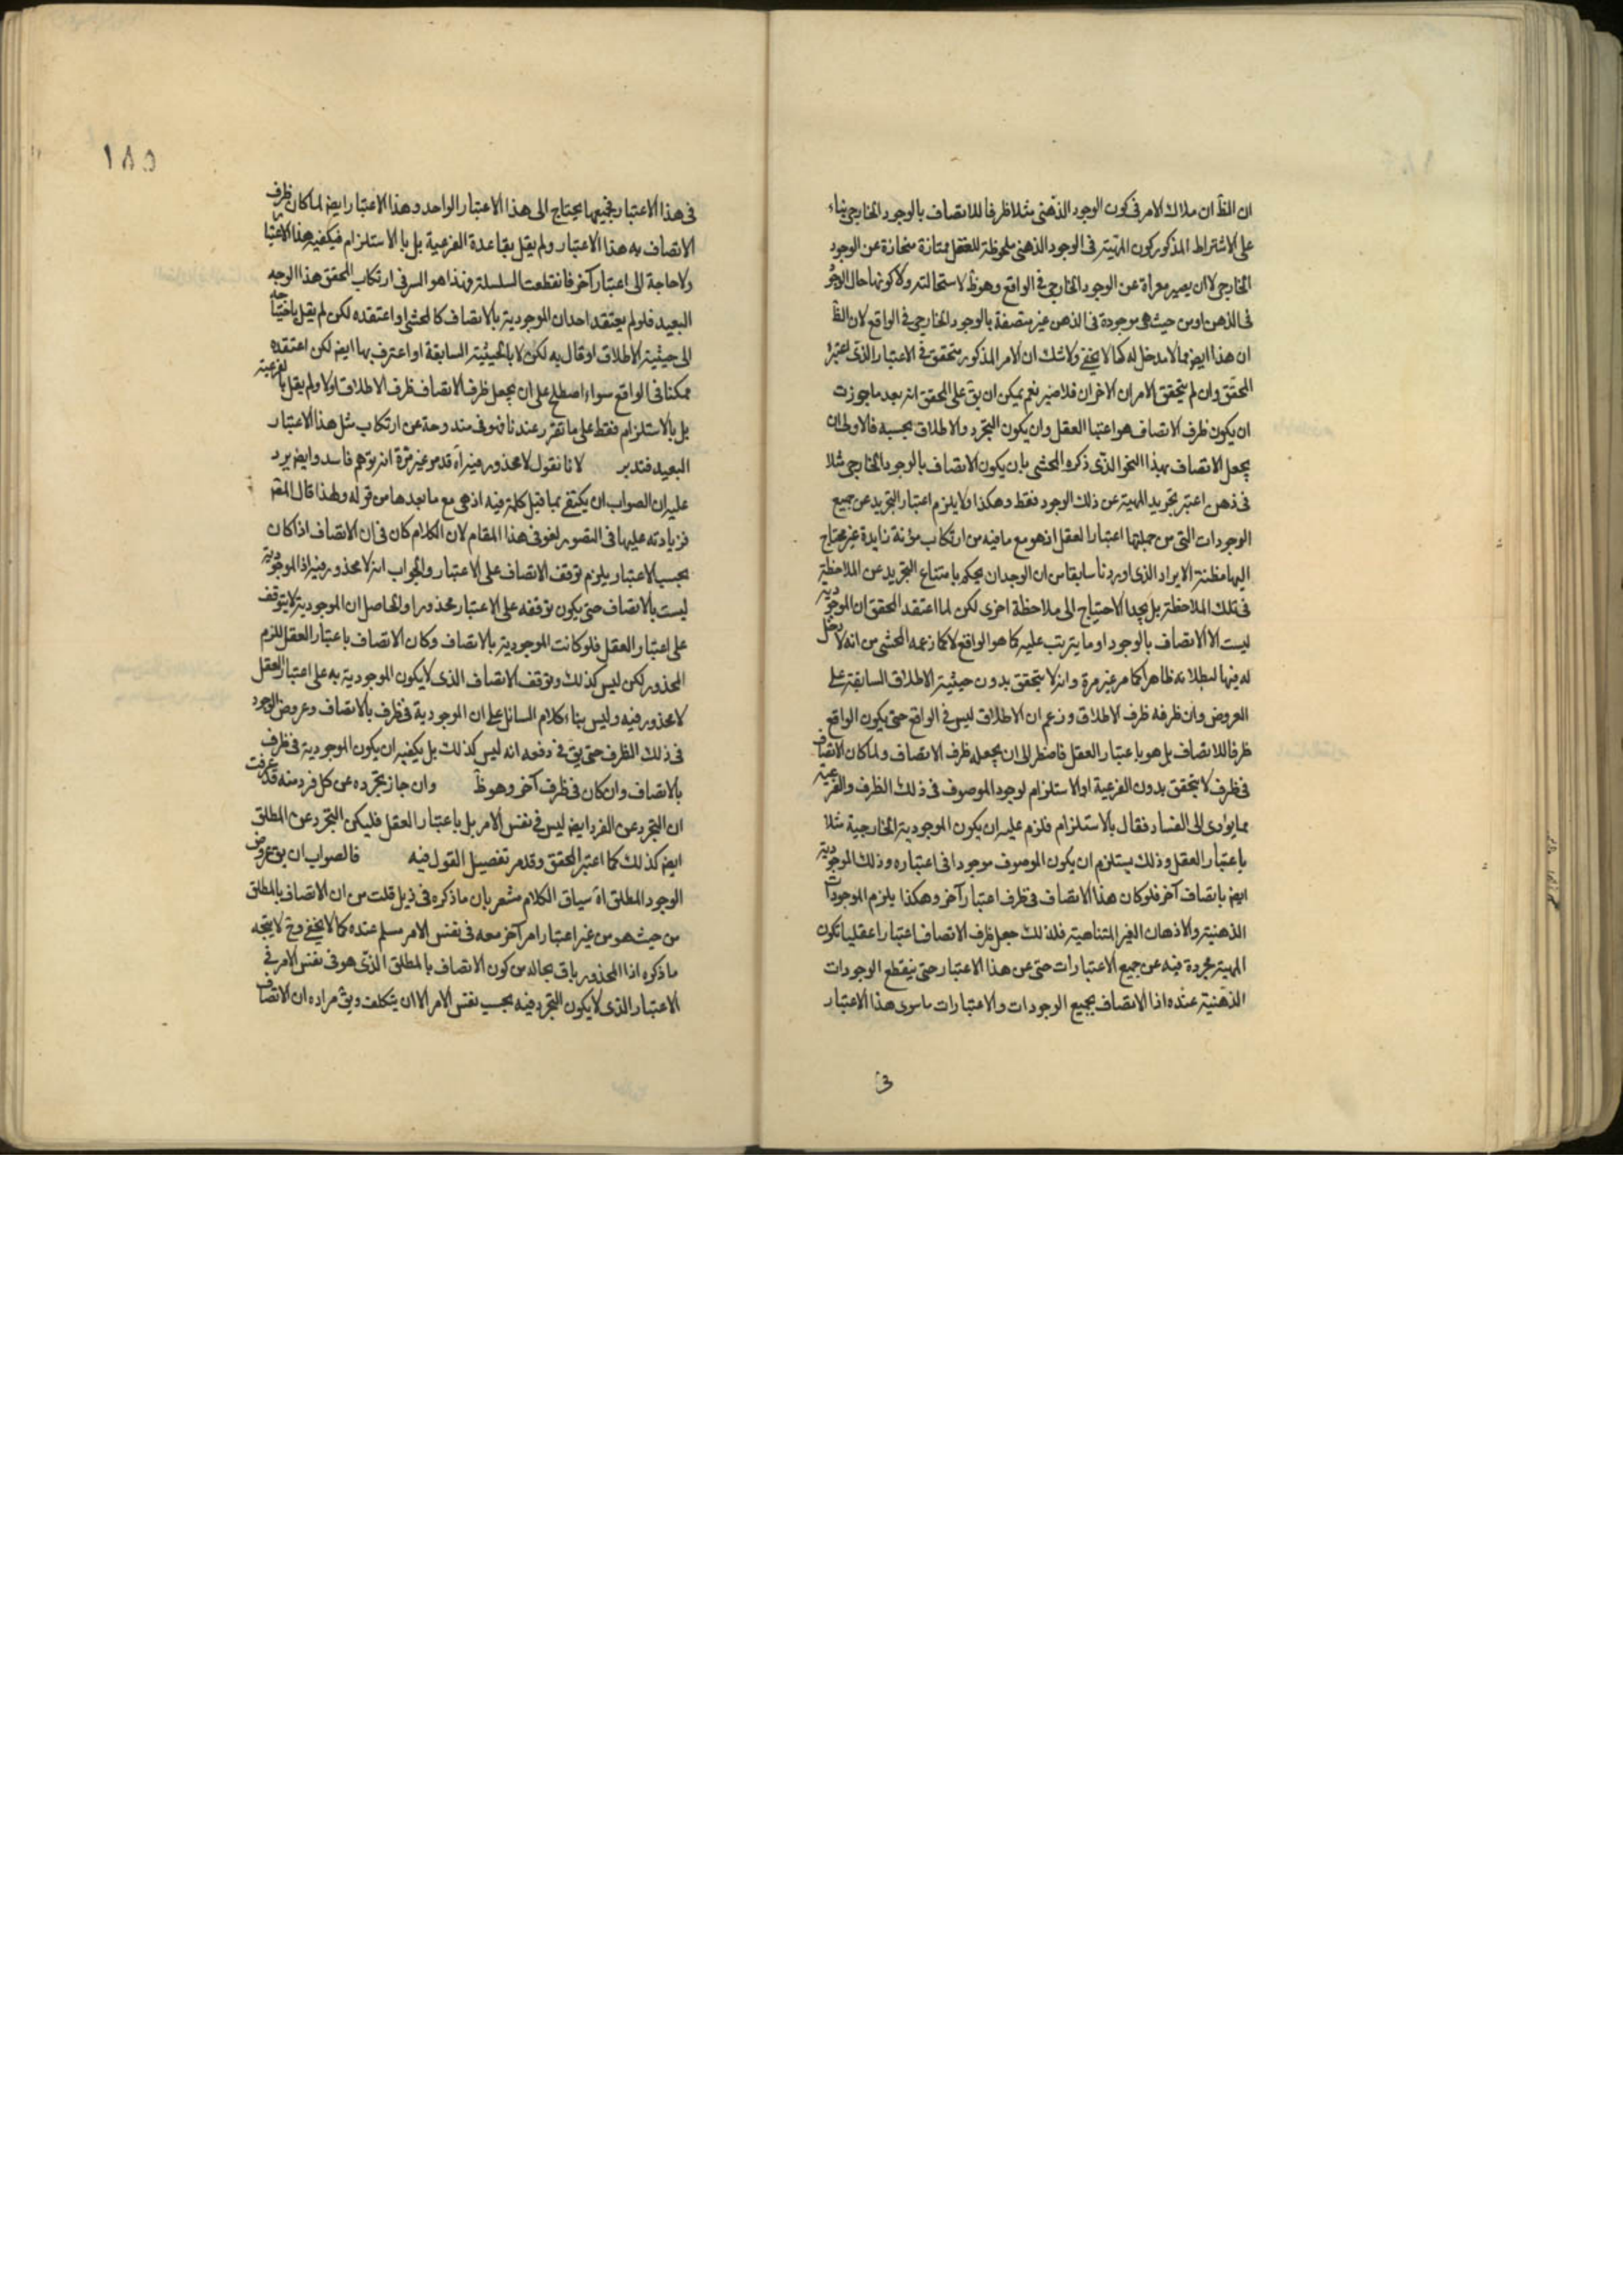 ان الظ ان ملاك الامر فى كون الوجود الذهنى مثلا ظرفا للاتصاف بالوجود الخارجى بناء
على الاشتراط المذكور كون المهية فى الوجود الذهنى ملحوظة للعقل ممتازة منحازة عن الوجود
الخارجى لا ان يصير معراة عن الوجود الخارجى فى الواقع وهو ظ لاستحالته ولا كونها حال الوجود
فى الذهن او من حيث هى موجودة فى الذهن غير متصفة بالوجود الخارجى فى الواقع لان الظ
ان هذا ايض مما لا مدخل له كما لا يخفى ولا شك ان الامر المذكور متحقق فى الاعتبار الذى اعتبره
المحقق وان لم يتحقق الامران الاخران فلا ضير نعم يمكن ان يق على المحقق انه بعد ما جوزت
ان يكون ظرف الاتصاف هو اعتبار العقل وان يكون التجرد والاطلاق بحسبه فالاولى ان
يجعل الاتصاف بهذا النحو الذى ذكره المحشى بان يكون الاتصاف بالوجود الخارجى مثلا
فى ذهن اعتبر تجريد المهية عن ذلك الوجود فقط وهكذا ولا يلزم اعتبار التجريد عن جميع
الوجودات التى من جملتها اعتبار العقل اذ هو مع ما فيه من ارتكاب مؤنة زايدة غير محتاج
اليها مظنة الايراد الذى اوردنا سابقا من ان الوجدان يحكم بامتناع التجريد عن الملاحظة
فى تلك الملاحظة بل بجد الاحتياج الى ملاحظة اخرى لكن لما اعتقد المحقق ان الموجودية
ليست الا الاتصاف بالوجود او ما يترتب عليه كما هو الواقع لا كما زعمه المحشى من انه لا دخل
له فيها لبطلانه ظاهرا كما مر غير مرة وانه لا يتحقق بدون حيثية الاطلاق السابقة على
العروض وان ظرفه ظرف الاطلاق وزعم ان الاطلاق ليس فى الواقع حتى يكون الواقع
ظرفا للاتصاف بل هو باعتبار العقل فاضطر الى ان يجعله ظرف الاتصاف ولما كان الاتصاف
فى ظرف لا يتحقق بدون الفرعية او الاستلزام لوجود الموصوف فى ذلك الظرف والفرعية
مما يؤدى الى الفساد فقال بالاستلزام فلزم عليه ان يكون الموجودية الخارجية مثلا
باعتبار العقل وذلك يستلزم ان يكون الموصوف موجودا فى اعتباره وذلك الموجودية
ايض باتصاف آخر فلو كان هذا الاتصاف فى ظرف اعتبار آخر وهكذا يلزم الموجودات
الذهنية والاذهان الغير المتناهية فلذلك جعل ظرف الاتصاف اعتبارا عقليا تكون
المهية مجردة فيه عن جميع الاعتبارات حتى عن هذا الاعتبار حتى ينقطع الوجودات
الذهنية عنده اذا الاتصاف بجميع الوجودات والاعتبارات ما سوى هذا الاعتبار
فى
١٨٥
فى هذا الاعتبار فجميعها يحتاج الى هذا الاعتبار الواحد وهذا الاعتبار ايض لما كان ظرف
الاتصاف به هذا الاعتبار ولم يقل بقاعدة الفرعية بل بالاستلزام فيكفيه هذا الاعتبار
ولا حاجة الى اعتبار آخر فانقطعت السلسلة وهذا هو السر فى ارتكاب المحقق هذا الوجه
البعيد فلو لم يعتقد احد ان الموجودية بالاتصاف كالمحشى او اعتقده لكن لم يقل باحتياجه
الى حيثية الاطلاق او قال به لكن لا بالحيثية السابقة او اعترف بها ايض لكن اعتقده
ممكنا فى الواقع سواء اصطلح على ان يجعل ظرف الاتصاف ظرف الاطلاق او لا ولم يقل بالفرعية
بل بالاستلزام فقط على ما تقرر عندنا فهو فى مندوحة عن ارتكاب مثل هذا الاعتبار
البعيد فتدبر لانا نقول لا محذور فيه آه قد مر غير مرة انه توهم فاسد وايض يرد
عليه ان الصواب ان يكتفى بما قبل كلمة فيه اذ هى مع ما بعدها من قوله ولهذا قال المقـ
فزيادته عليها فى التصوير لغو فى هذا المقام لان الكلام كان فى ان الاتصاف اذا كان
بحسب الاعتبار يلزم توقف الاتصاف على الاعتبار والجواب انه لا محذور فيه اذ الموجودية
ليست بالاتصاف حتى يكون توقفه على الاعتبار محذورا والحاصل ان الموجودية لا يتوقف
على اعتبار العقل فلو كانت الموجودية بالاتصاف وكان الاتصاف باعتبار العقل للزم
المحذور لكن ليس كذلك وتوقف الاتصاف الذى لا يكون الموجودية به على اعتبار العقل
لا محذور فيه وليس بناء كلام السائل على ان الموجودية فى ظرف بالاتصاف وعروض الوجود
فى ذلك الظرف حتى يق فى دفعه انه ليس كذلك بل يكفيه ان يكون الموجودية فى ظرف
بالاتصاف وان كان فى ظرف آخر وهو ظ وان جاز تجرده عن كل فرد منه قد عرفت
ان التجرد عن الفرد ايض ليس فى نفس الامر بل باعتبار العقل فليكن التجرد عن المطلق
ايض كذلك كما اعتبر المحقق وقد مر تفصيل القول فيه فالصواب ان يق عروض
الوجود المطلق آه سياق الكلام مشعر بان ما ذكره فى ذيل قلت من ان الاتصاف بالمطلق
من حيث هو من غير اعتبار امر آخر معه فى نفس الامر مسلم عنده كما لا يخفى وح لا يتجه
ما ذكره اذا المحذور باق بحاله من كون الاتصاف بالمطلق الذى هو فى نفس الامر فى
الاعتبار الذى لا يكون التجرد فيه بحسب نفس الامر الا ان يتكلف ويق مراده ان الاتصاف